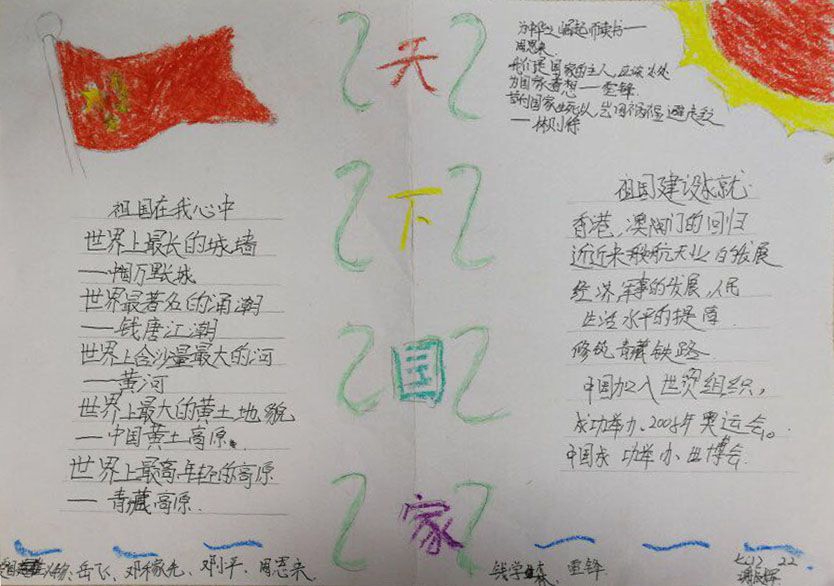 天
下
国
家
为中华之崛起而读书——
周恩来
我们是国家的主人,应该处处
为国家着想——雷锋
苟利国家生死以,岂因祸福避趋之
——林则徐
祖国在我心中
世界上最长的城墙
——中国万里长城
世界最著名的涌潮
——钱唐江潮
世界上含沙量最大的河
——黄河
世界上最大的黄土地貌
——中国黄土高原
世界上最高年轻的高原
——青藏高原
祖国建设成就
香港,澳门的回归
近近来 航天业的发展
经济军事的发展,人民
生活水平的提高
修筑青藏铁路
中国加入世贸组织,
成功举办2008年奥运会。
中国成功举办世博会
岳飞、邓稼先、邓小平、周恩来、
钱学森、雷锋
22